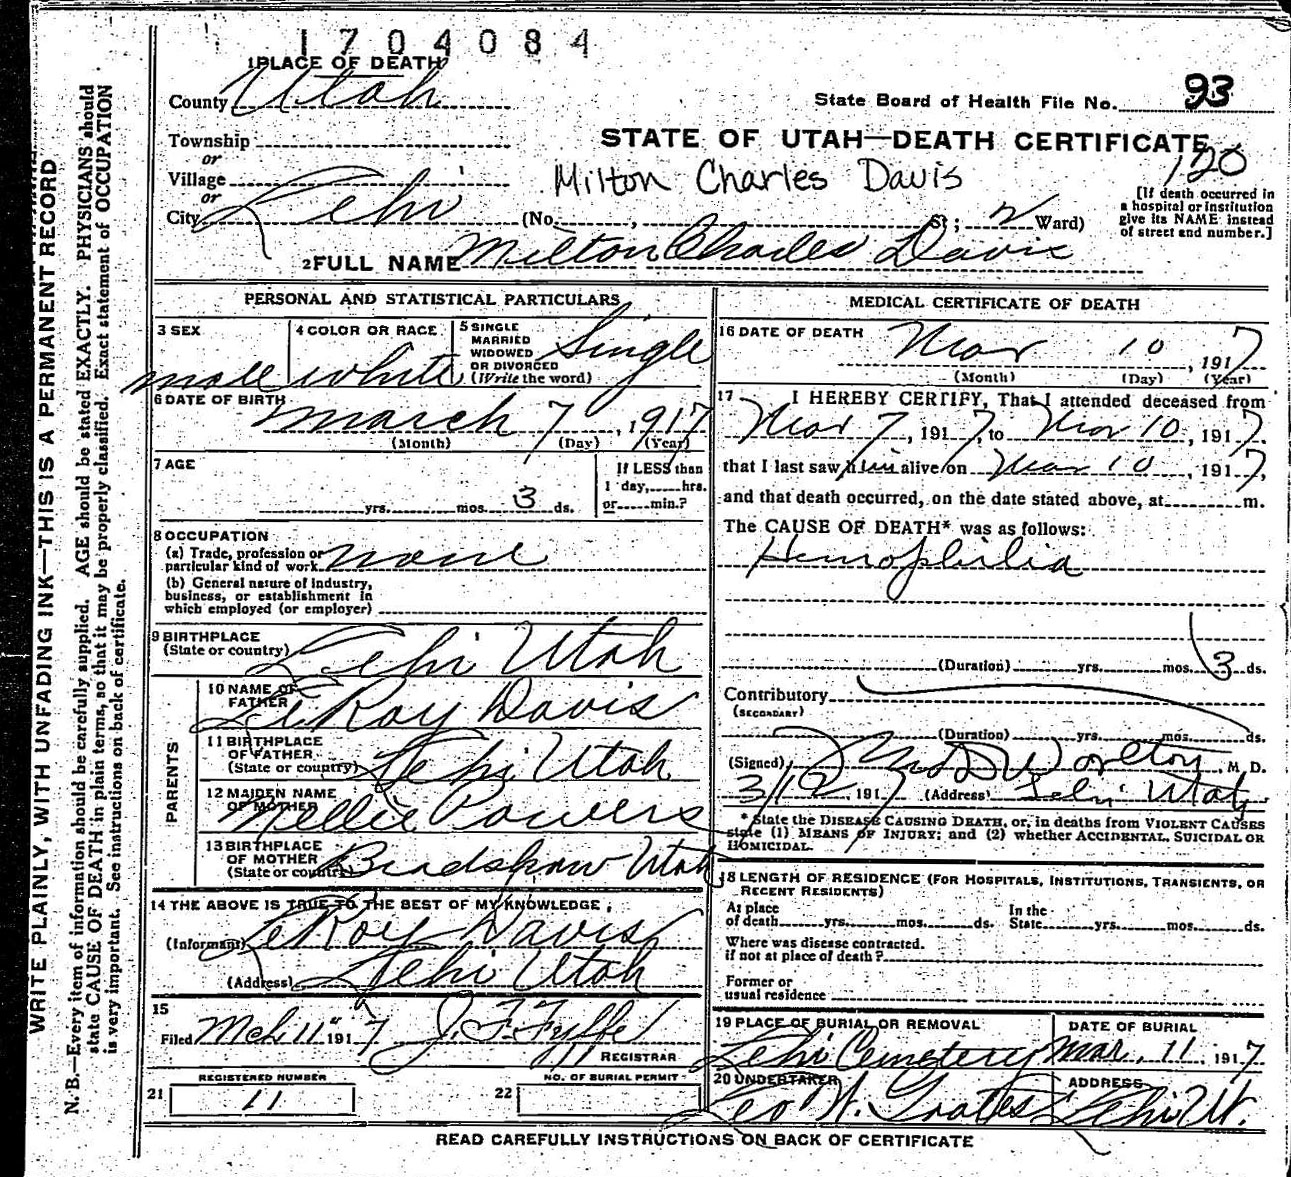 1704084
1 PLACE OF DEATH
County Utah
State Board of Health File No. 93
Township
or
STATE OF UTAH—DEATH CERTIFICATE
120
Village
or
Milton Charles Davis
City Lehi (No. , St; 2 Ward)
[If death occurred in
a hospital or institution
give its NAME instead
of street and number.]
2 FULL NAME Milton Charles Davis
PERSONAL AND STATISTICAL PARTICULARS
3 SEX male
4 COLOR OR RACE white
5 SINGLE
MARRIED
WIDOWED
OR DIVORCED
(Write the word) Single
6 DATE OF BIRTH
March 7, 1917
(Month) (Day) (Year)
7 AGE
yrs. mos. 3 ds.
If LESS than
1 day, hrs.
or min.?
8 OCCUPATION
(a) Trade, profession or
particular kind of work none
(b) General nature of industry,
business, or establishment in
which employed (or employer)
9 BIRTHPLACE
(State or country) Lehi Utah
PARENTS
10 NAME OF
FATHER LeRoy Davis
11 BIRTHPLACE
OF FATHER
(State or country) Lehi Utah
12 MAIDEN NAME
OF MOTHER Nellie Powers
13 BIRTHPLACE
OF MOTHER
(State or country) Utah
14 THE ABOVE IS TRUE TO THE BEST OF MY KNOWLEDGE,
(Informant) LeRoy Davis
(Address) Lehi Utah
15
Filed Mch 11" 1917 J. F. Fyffe
REGISTRAR
REGISTERED NUMBER
21 11
NO. OF BURIAL PERMIT
22
MEDICAL CERTIFICATE OF DEATH
16 DATE OF DEATH Mar 10, 1917
(Month) (Day) (Year)
17 I HEREBY CERTIFY, That I attended deceased from
Mar 7, 1917, to Mar 10, 1917,
that I last saw him alive on Mar 10, 1917,
and that death occurred, on the date stated above, at m.
The CAUSE OF DEATH* was as follows:
Hemophilia
(Duration) yrs. mos. 3 ds.
Contributory
(SECONDARY)
(Duration) yrs. mos. ds.
(Signed) Worlton, M. D.
3/12, 1917 (Address) Lehi Utah
* State the DISEASE CAUSING DEATH, or, in deaths from VIOLENT CAUSES
state (1) MEANS OF INJURY; and (2) whether ACCIDENTAL, SUICIDAL OR
HOMICIDAL.
18 LENGTH OF RESIDENCE (FOR HOSPITALS, INSTITUTIONS, TRANSIENTS, OR
RECENT RESIDENTS)
At place
of death yrs. mos. ds.
In the
State yrs. mos. ds.
Where was disease contracted.
if not at place of death?
Former or
usual residence
19 PLACE OF BURIAL OR REMOVAL
Lehi Cemetery
DATE OF BURIAL
Mar. 11 1917
20 UNDERTAKER
Geo W. Goates
ADDRESS
Lehi Ut.
READ CAREFULLY INSTRUCTIONS ON BACK OF CERTIFICATE
WRITE PLAINLY, WITH UNFADING INK—THIS IS A PERMANENT RECORD
N. B.—Every item of information should be carefully supplied. AGE should be stated EXACTLY. PHYSICIANS should
state CAUSE OF DEATH in plain terms, so that it may be properly classified. Exact statement of OCCUPATION
is very important. See instructions on back of certificate.